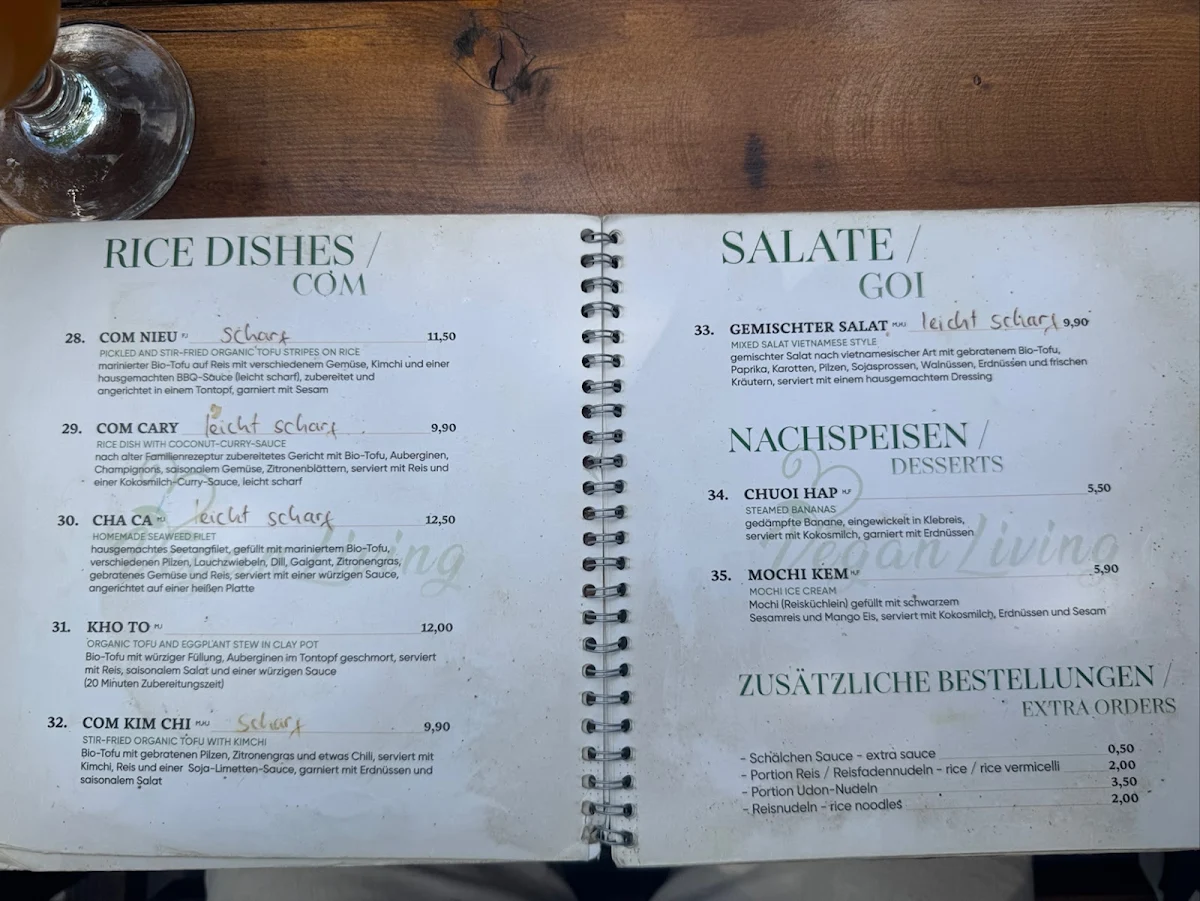 RICE DISHES /
COM
28. COM NIEU scharf 11,50
PICKLED AND STIR-FRIED ORGANIC TOFU STRIPES ON RICE
marinierter Bio-Tofu auf Reis mit verschiedenem Gemüse, Kimchi und einer
hausgemachten BBQ-Sauce (leicht scharf), zubereitet und
angerichtet in einem Tontopf, garniert mit Sesam
29. COM CARY leicht scharf 9,90
RICE DISH WITH COCONUT-CURRY-SAUCE
nach alter Familienrezeptur zubereitetes Gericht mit Bio-Tofu, Auberginen,
Champignons, saisonalem Gemüse, Zitronenblättern, serviert mit Reis und
einer Kokosmilch-Curry-Sauce, leicht scharf
30. CHA CA leicht scharf 12,50
HOMEMADE SEAWEED FILET
hausgemachtes Seetangfilet, gefüllt mit mariniertem Bio-Tofu,
verschiedenen Pilzen, Lauchzwiebeln, Dill, Galgant, Zitronengras,
gebratenes Gemüse und Reis, serviert mit einer würzigen Sauce,
angerichtet auf einer heißen Platte
31. KHO TO 12,00
ORGANIC TOFU AND EGGPLANT STEW IN CLAY POT
Bio-Tofu mit würziger Füllung, Auberginen im Tontopf geschmort, serviert
mit Reis, saisonalem Salat und einer würzigen Sauce
(20 Minuten Zubereitungszeit)
32. COM KIM CHI scharf 9,90
STIR-FRIED ORGANIC TOFU WITH KIMCHI
Bio-Tofu mit gebratenen Pilzen, Zitronengras und etwas Chili, serviert mit
Kimchi, Reis und einer Soja-Limetten-Sauce, garniert mit Erdnüssen und
saisonalem Salat
SALATE /
GOI
33. GEMISCHTER SALAT leicht scharf 9,90
MIXED SALAT VIETNAMESE STYLE
gemischter Salat nach vietnamesischer Art mit gebratenem Bio-Tofu,
Paprika, Karotten, Pilzen, Sojasprossen, Walnüssen, Erdnüssen und frischen
Kräutern, serviert mit einem hausgemachtem Dressing
NACHSPEISEN /
DESSERTS
34. CHUOI HAP 5,50
STEAMED BANANAS
gedämpfte Banane, eingewickelt in Klebreis,
serviert mit Kokosmilch, garniert mit Erdnüssen
Vegan Living
35. MOCHI KEM 5,90
MOCHI ICE CREAM
Mochi (Reisküchlein) gefüllt mit schwarzem
Sesamreis und Mango Eis, serviert mit Kokosmilch, Erdnüssen und Sesam
ZUSÄTZLICHE BESTELLUNGEN /
EXTRA ORDERS
- Schälchen Sauce - extra sauce 0,50
- Portion Reis / Reisfadennudeln - rice / rice vermicelli 2,00
- Portion Udon-Nudeln 3,50
- Reisnudeln - rice noodles 2,00